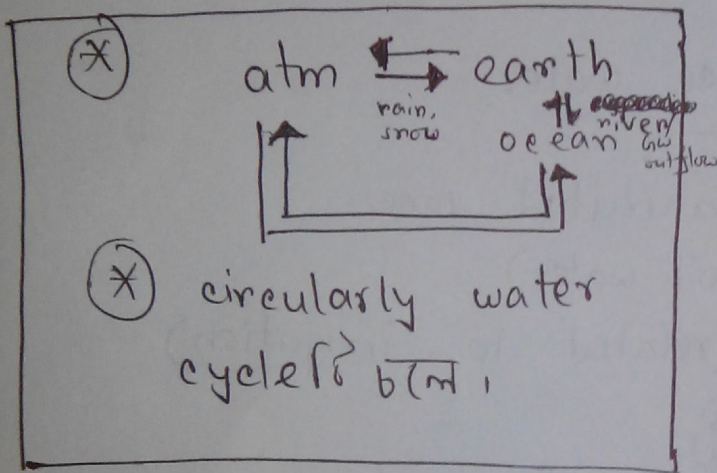 * atm ⇌ earth
rain,
snow
ocean ⇅ river/
GW
outflow
* circularly water
cycleটি চলে।